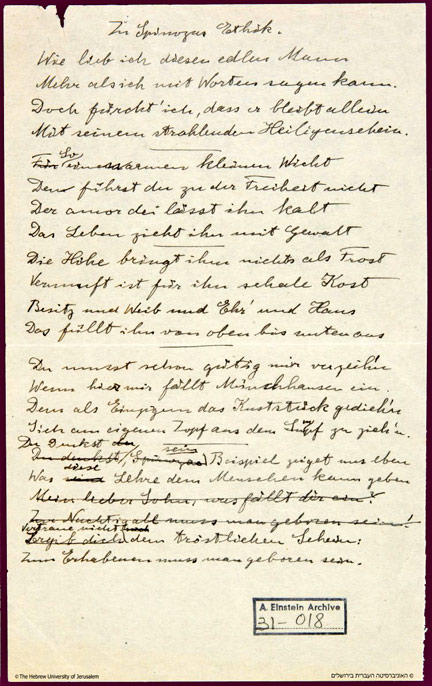 Zu Spinozas Ethik.
Wie lieb ich diesen edlen Mann
Mehr als ich mit Worten sagen kann.
Doch fürcht' ich, dass er bleibt allein
Mit seinem strahlenden Heiligenschein.
Für So einen armen kleinen Wicht
Den führst du zu der Freiheit nicht
Der amor dei lässt ihn kalt
Das Leben zieht ihn mit Gewalt
Die Höhe bringt ihm nichts als Frost
Vernunft ist für ihn schale Kost
Besitz und Weib und Ehr' und Haus
Das füllt ihn von oben bis unten aus
Du musst schon gütig mir verzeih'n
Wenn hier mir fällt Münchhausen ein.
Dem als Einzigem das Kuststück gedieh'n
Sich am eigenen Zopf aus dem Sumpf zu zieh'n.
Du Denkst
Du denkst, sein Beispiel zeiget uns eben
Was diese Lehre dem Menschen kann geben
Mein lieber Sohn, was fällt dir ein?
Zur Nachtigall muss man geboren sein!
Vertraue nicht
dem tröstlichen Schein:
Zum Erhabenen muss man geboren sein.
A. Einstein Archive
31-018
© The Hebrew University of Jerusalem
© האוניברסיטה העברית בירושלים